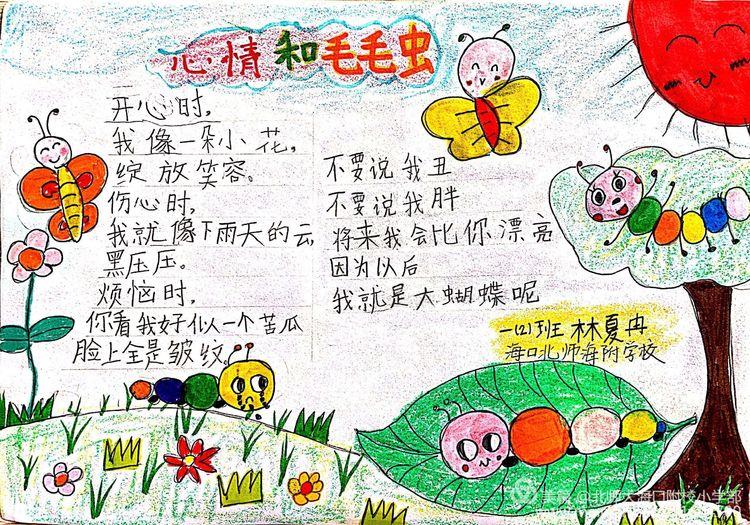 心情和毛毛虫
开心时，
我像一朵小花，
绽放笑容。
伤心时，
我就像下雨天的云
黑压压。
烦恼时，
你看我好似一个苦瓜
脸上全是皱纹。
不要说我丑
不要说我胖
将来我会比你漂亮
因为以后
我就是大蝴蝶呢
一(2)班 林夏冉
海口北师海附学校
美篇 @北师大海口附校小学部